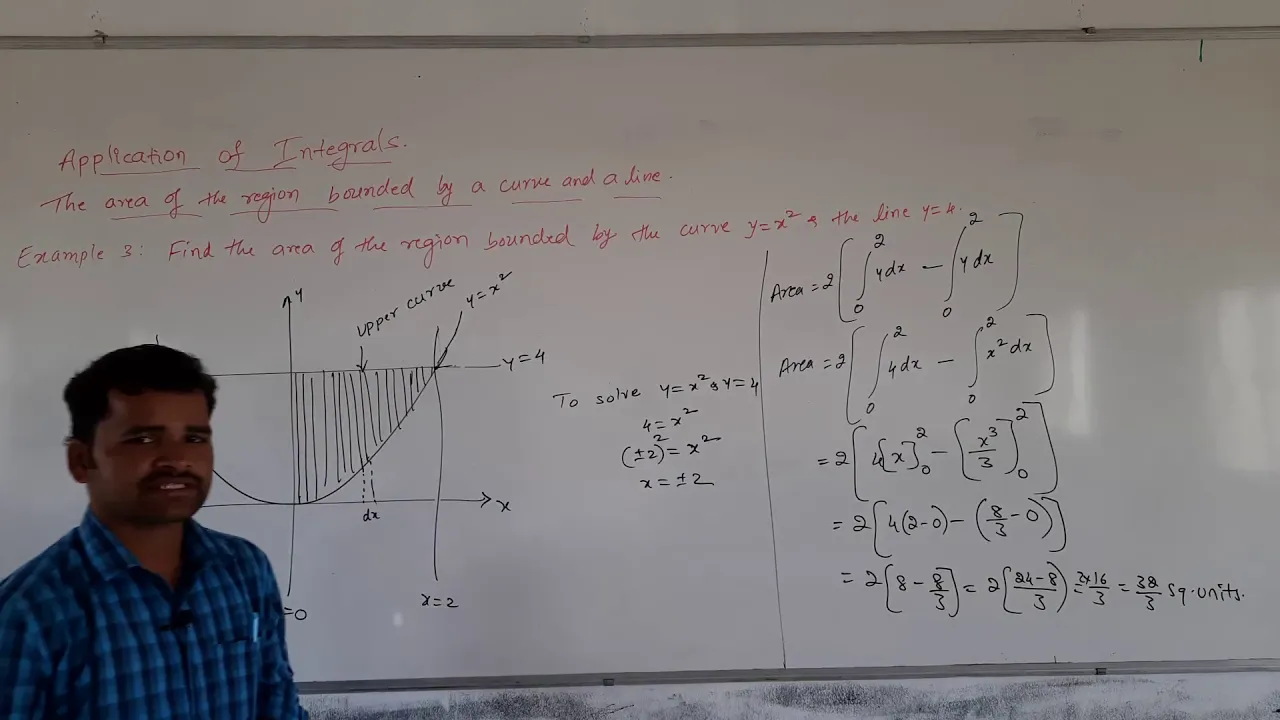 Application of Integrals.
The area of the region bounded by a curve and a line.
Example 3: Find the area of the region bounded by the curve y=x² & the line y=4.
y
upper curve
y=x²
y=4
x
dx
=0
x=2
To solve y=x² & y=4
4=x²
(±2)²=x²
x=±2
Area=2[∫₀² y dx − ∫₀² y dx]
Area=2[∫₀² 4dx − ∫₀² x² dx]
=2[4[x]₀² − [x³/3]₀²]
=2[4(2-0)−(8/3−0)]
=2[8−8/3]=2[24-8/3]=2×16/3=32/3 Sq.units.